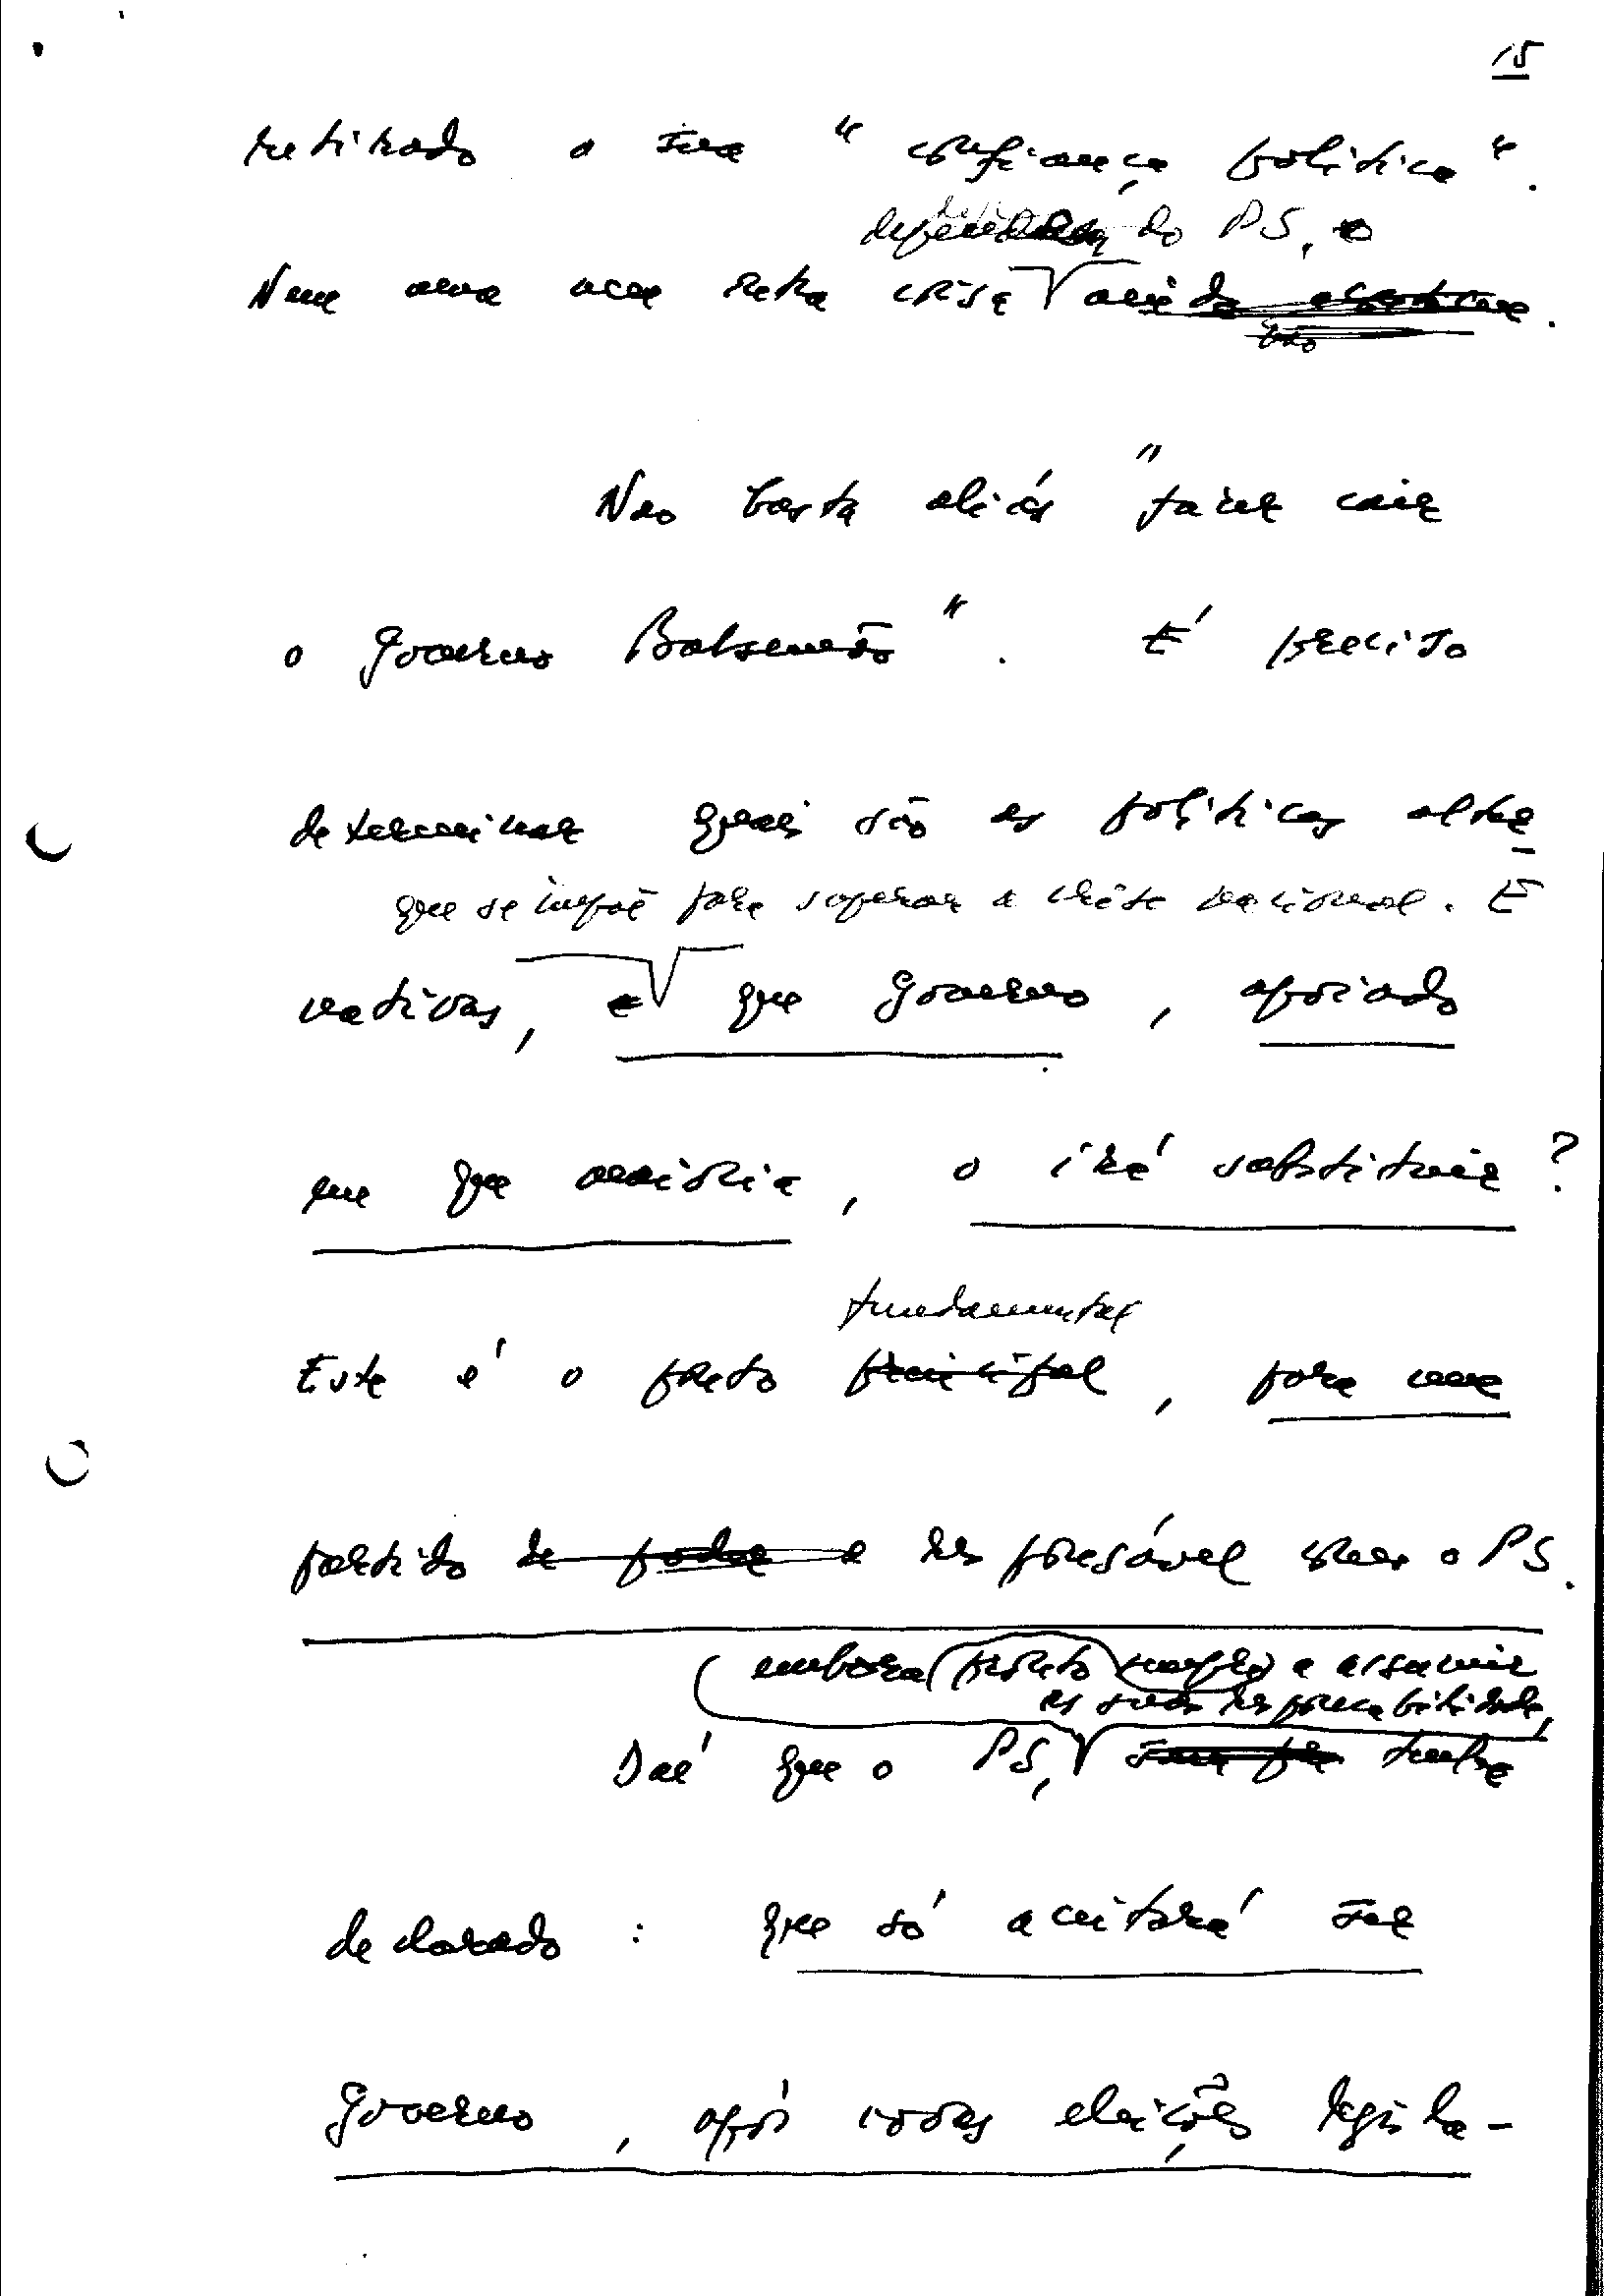 15
retirado a sua "confiança política".
do PS, o
Nem uma nem outra crise ainda
Não basta aliás "fazer cair
o Governo Balsemão". É preciso
determinar quais são as políticas alter
que se impõe para superar a crise nacional. E
nativas, e que Governo, apoiado
em que maioria, o irá substituir?
fundamental
Este é o ponto principal, para um
partido de poder e responsável como o PS.
embora pronto sempre a assumir
as suas responsabilidades,
Daí que o PS, tenha
declarado: que só aceitará ser
Governo, após novas eleições legisla-